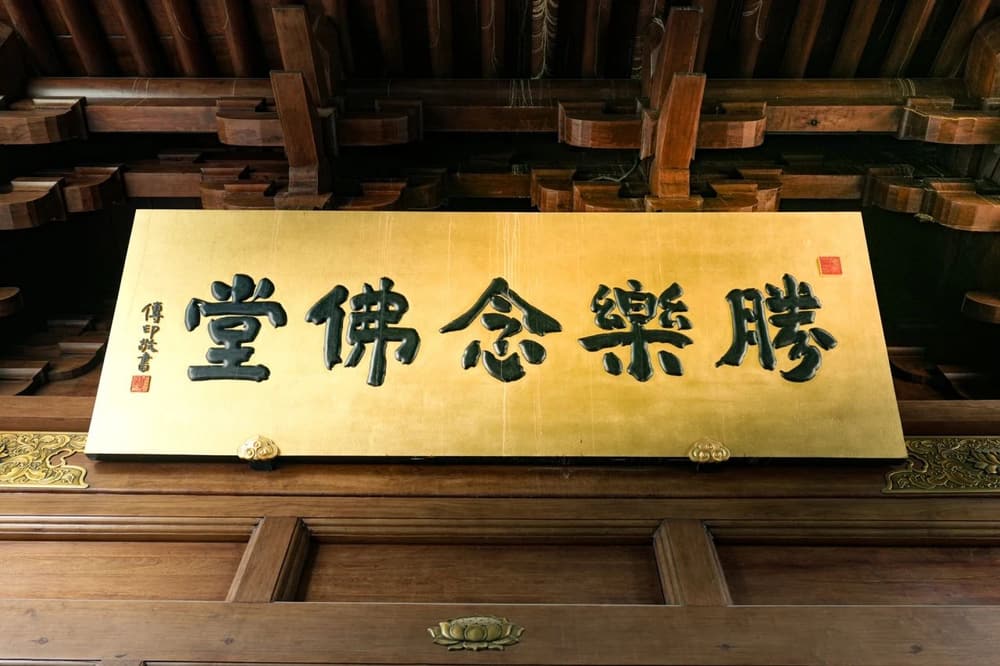 勝樂念佛堂
傳印敬書